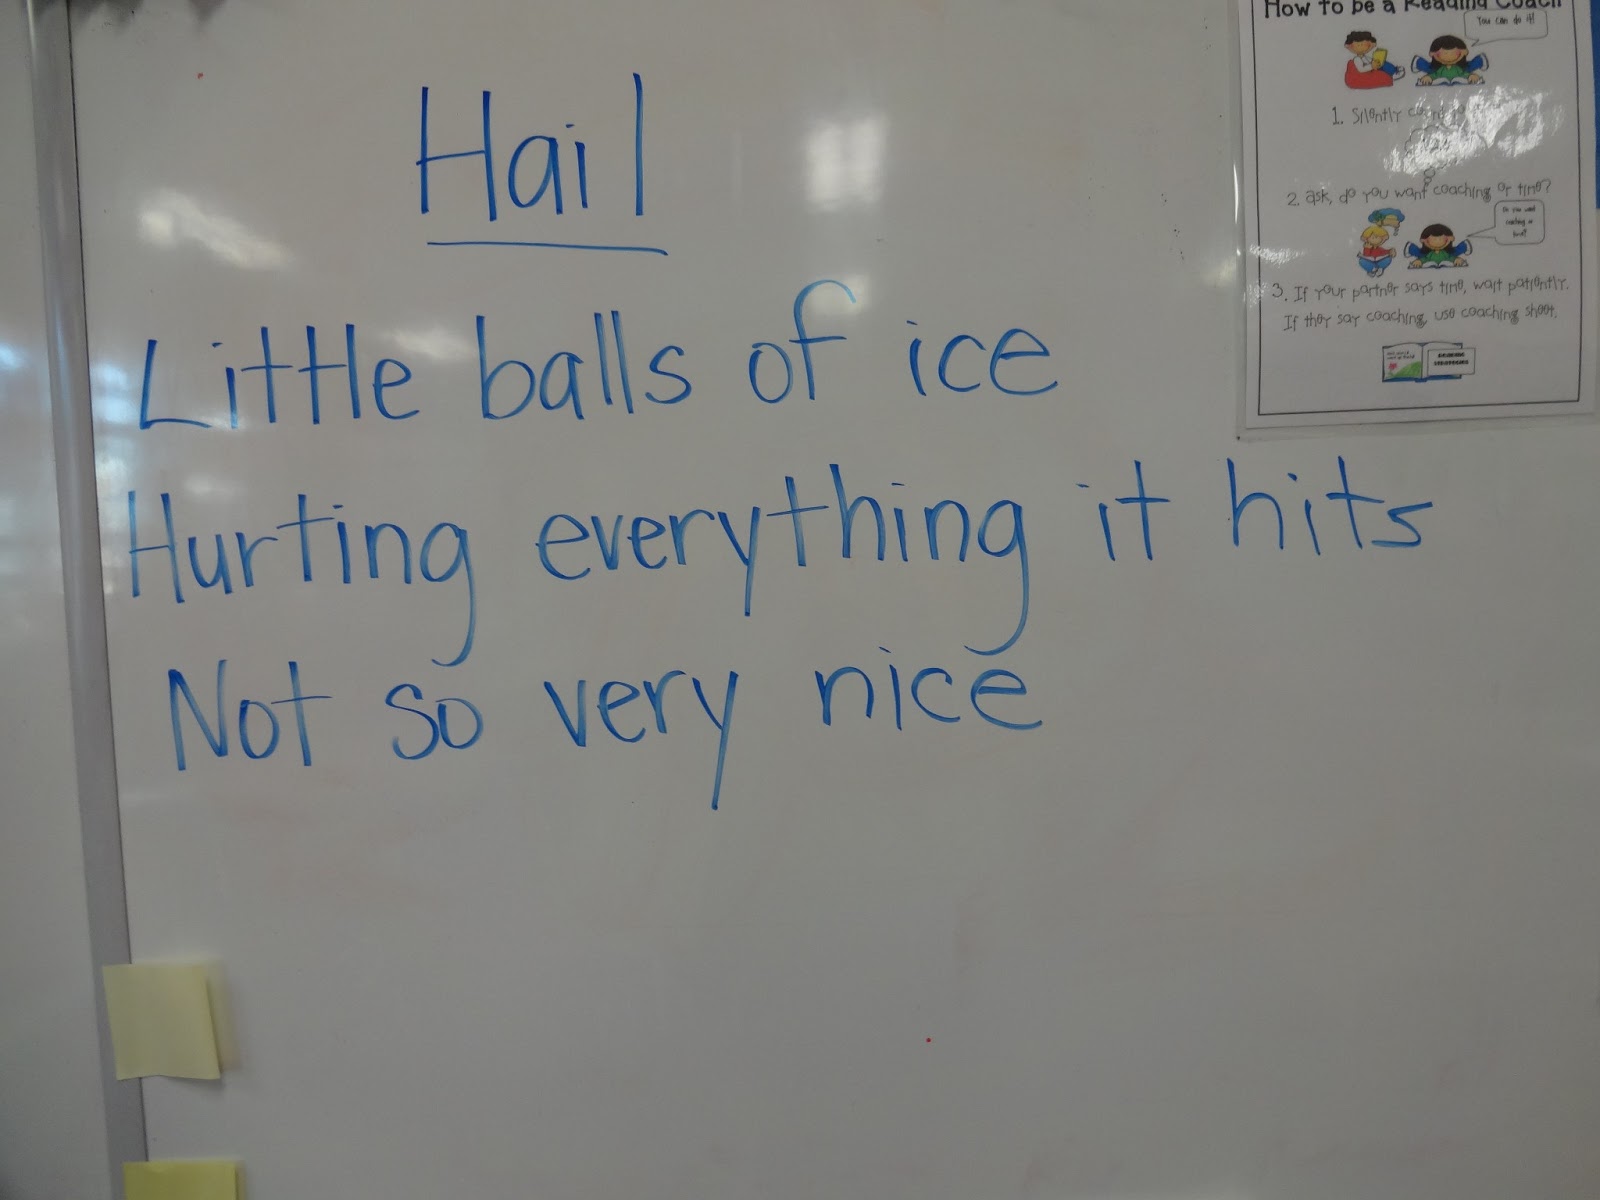 Hail
Little balls of ice
Hurting everything it hits
Not so very nice
How to be a Reading Coach
You can do it!
1. Silently
2. ask, do you want coaching or time?
Do you want
coaching or
time?
3. If your partner says time, wait patiently.
If they say coaching, use coaching sheet.